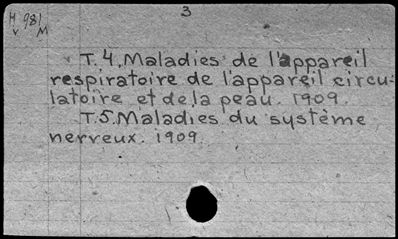 3
H 981
v M
T.4. Maladies de l'appareil
respiratoire de l'appareil circu-
latoire et de la peau. 1909.
T.5. Maladies du système
nerveux. 1909.